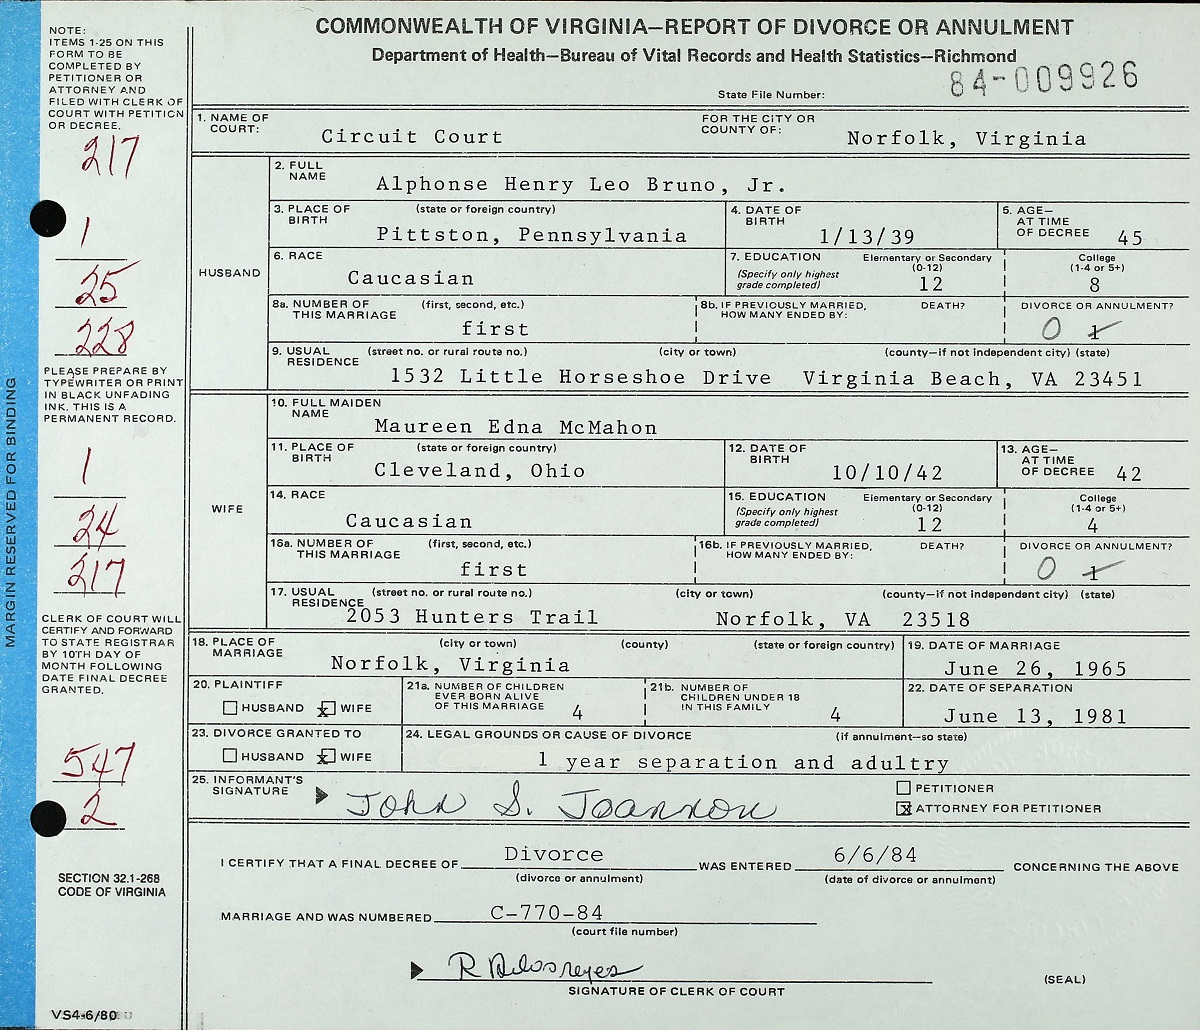 COMMONWEALTH OF VIRGINIA—REPORT OF DIVORCE OR ANNULMENT
Department of Health—Bureau of Vital Records and Health Statistics—Richmond
State File Number: 84-009926
NOTE:
ITEMS 1-25 ON THIS
FORM TO BE
COMPLETED BY
PETITIONER OR
ATTORNEY AND
FILED WITH CLERK OF
COURT WITH PETITION
OR DECREE.
217
1
25
228
PLEASE PREPARE BY
TYPEWRITER OR PRINT
IN BLACK UNFADING
INK. THIS IS A
PERMANENT RECORD.
1
24
217
CLERK OF COURT WILL
CERTIFY AND FORWARD
TO STATE REGISTRAR
BY 10TH DAY OF
MONTH FOLLOWING
DATE FINAL DECREE
GRANTED.
547
2
SECTION 32.1-268
CODE OF VIRGINIA
VS4-6/80
MARGIN RESERVED FOR BINDING
1. NAME OF COURT: Circuit Court FOR THE CITY OR COUNTY OF: Norfolk, Virginia
HUSBAND
2. FULL NAME Alphonse Henry Leo Bruno, Jr.
3. PLACE OF BIRTH (state or foreign country) Pittston, Pennsylvania 4. DATE OF BIRTH 1/13/39 5. AGE— AT TIME OF DECREE 45
6. RACE Caucasian 7. EDUCATION (Specify only highest grade completed) Elementary or Secondary (0-12) 12 College (1-4 or 5+) 8
8a. NUMBER OF THIS MARRIAGE (first, second, etc.) first 8b. IF PREVIOUSLY MARRIED, HOW MANY ENDED BY: DEATH? DIVORCE OR ANNULMENT? 0 1
9. USUAL RESIDENCE (street no. or rural route no.) (city or town) (county—if not independent city) (state)
1532 Little Horseshoe Drive Virginia Beach, VA 23451
WIFE
10. FULL MAIDEN NAME Maureen Edna McMahon
11. PLACE OF BIRTH (state or foreign country) Cleveland, Ohio 12. DATE OF BIRTH 10/10/42 13. AGE— AT TIME OF DECREE 42
14. RACE Caucasian 15. EDUCATION (Specify only highest grade completed) Elementary or Secondary (0-12) 12 College (1-4 or 5+) 4
16a. NUMBER OF THIS MARRIAGE (first, second, etc.) first 16b. IF PREVIOUSLY MARRIED, HOW MANY ENDED BY: DEATH? DIVORCE OR ANNULMENT? 0 1
17. USUAL RESIDENCE (street no. or rural route no.) (city or town) (county—if not independent city) (state)
2053 Hunters Trail Norfolk, VA 23518
18. PLACE OF MARRIAGE (city or town) (county) (state or foreign country) Norfolk, Virginia 19. DATE OF MARRIAGE June 26, 1965
20. PLAINTIFF HUSBAND x WIFE 21a. NUMBER OF CHILDREN EVER BORN ALIVE OF THIS MARRIAGE 4 21b. NUMBER OF CHILDREN UNDER 18 IN THIS FAMILY 4 22. DATE OF SEPARATION June 13, 1981
23. DIVORCE GRANTED TO HUSBAND x WIFE 24. LEGAL GROUNDS OR CAUSE OF DIVORCE (if annulment—so state) 1 year separation and adultry
25. INFORMANT'S SIGNATURE John S. Joannou PETITIONER
x ATTORNEY FOR PETITIONER
I CERTIFY THAT A FINAL DECREE OF Divorce WAS ENTERED 6/6/84 CONCERNING THE ABOVE
(divorce or annulment) (date of divorce or annulment)
MARRIAGE AND WAS NUMBERED C-770-84
(court file number)
R Delosreyes
SIGNATURE OF CLERK OF COURT (SEAL)